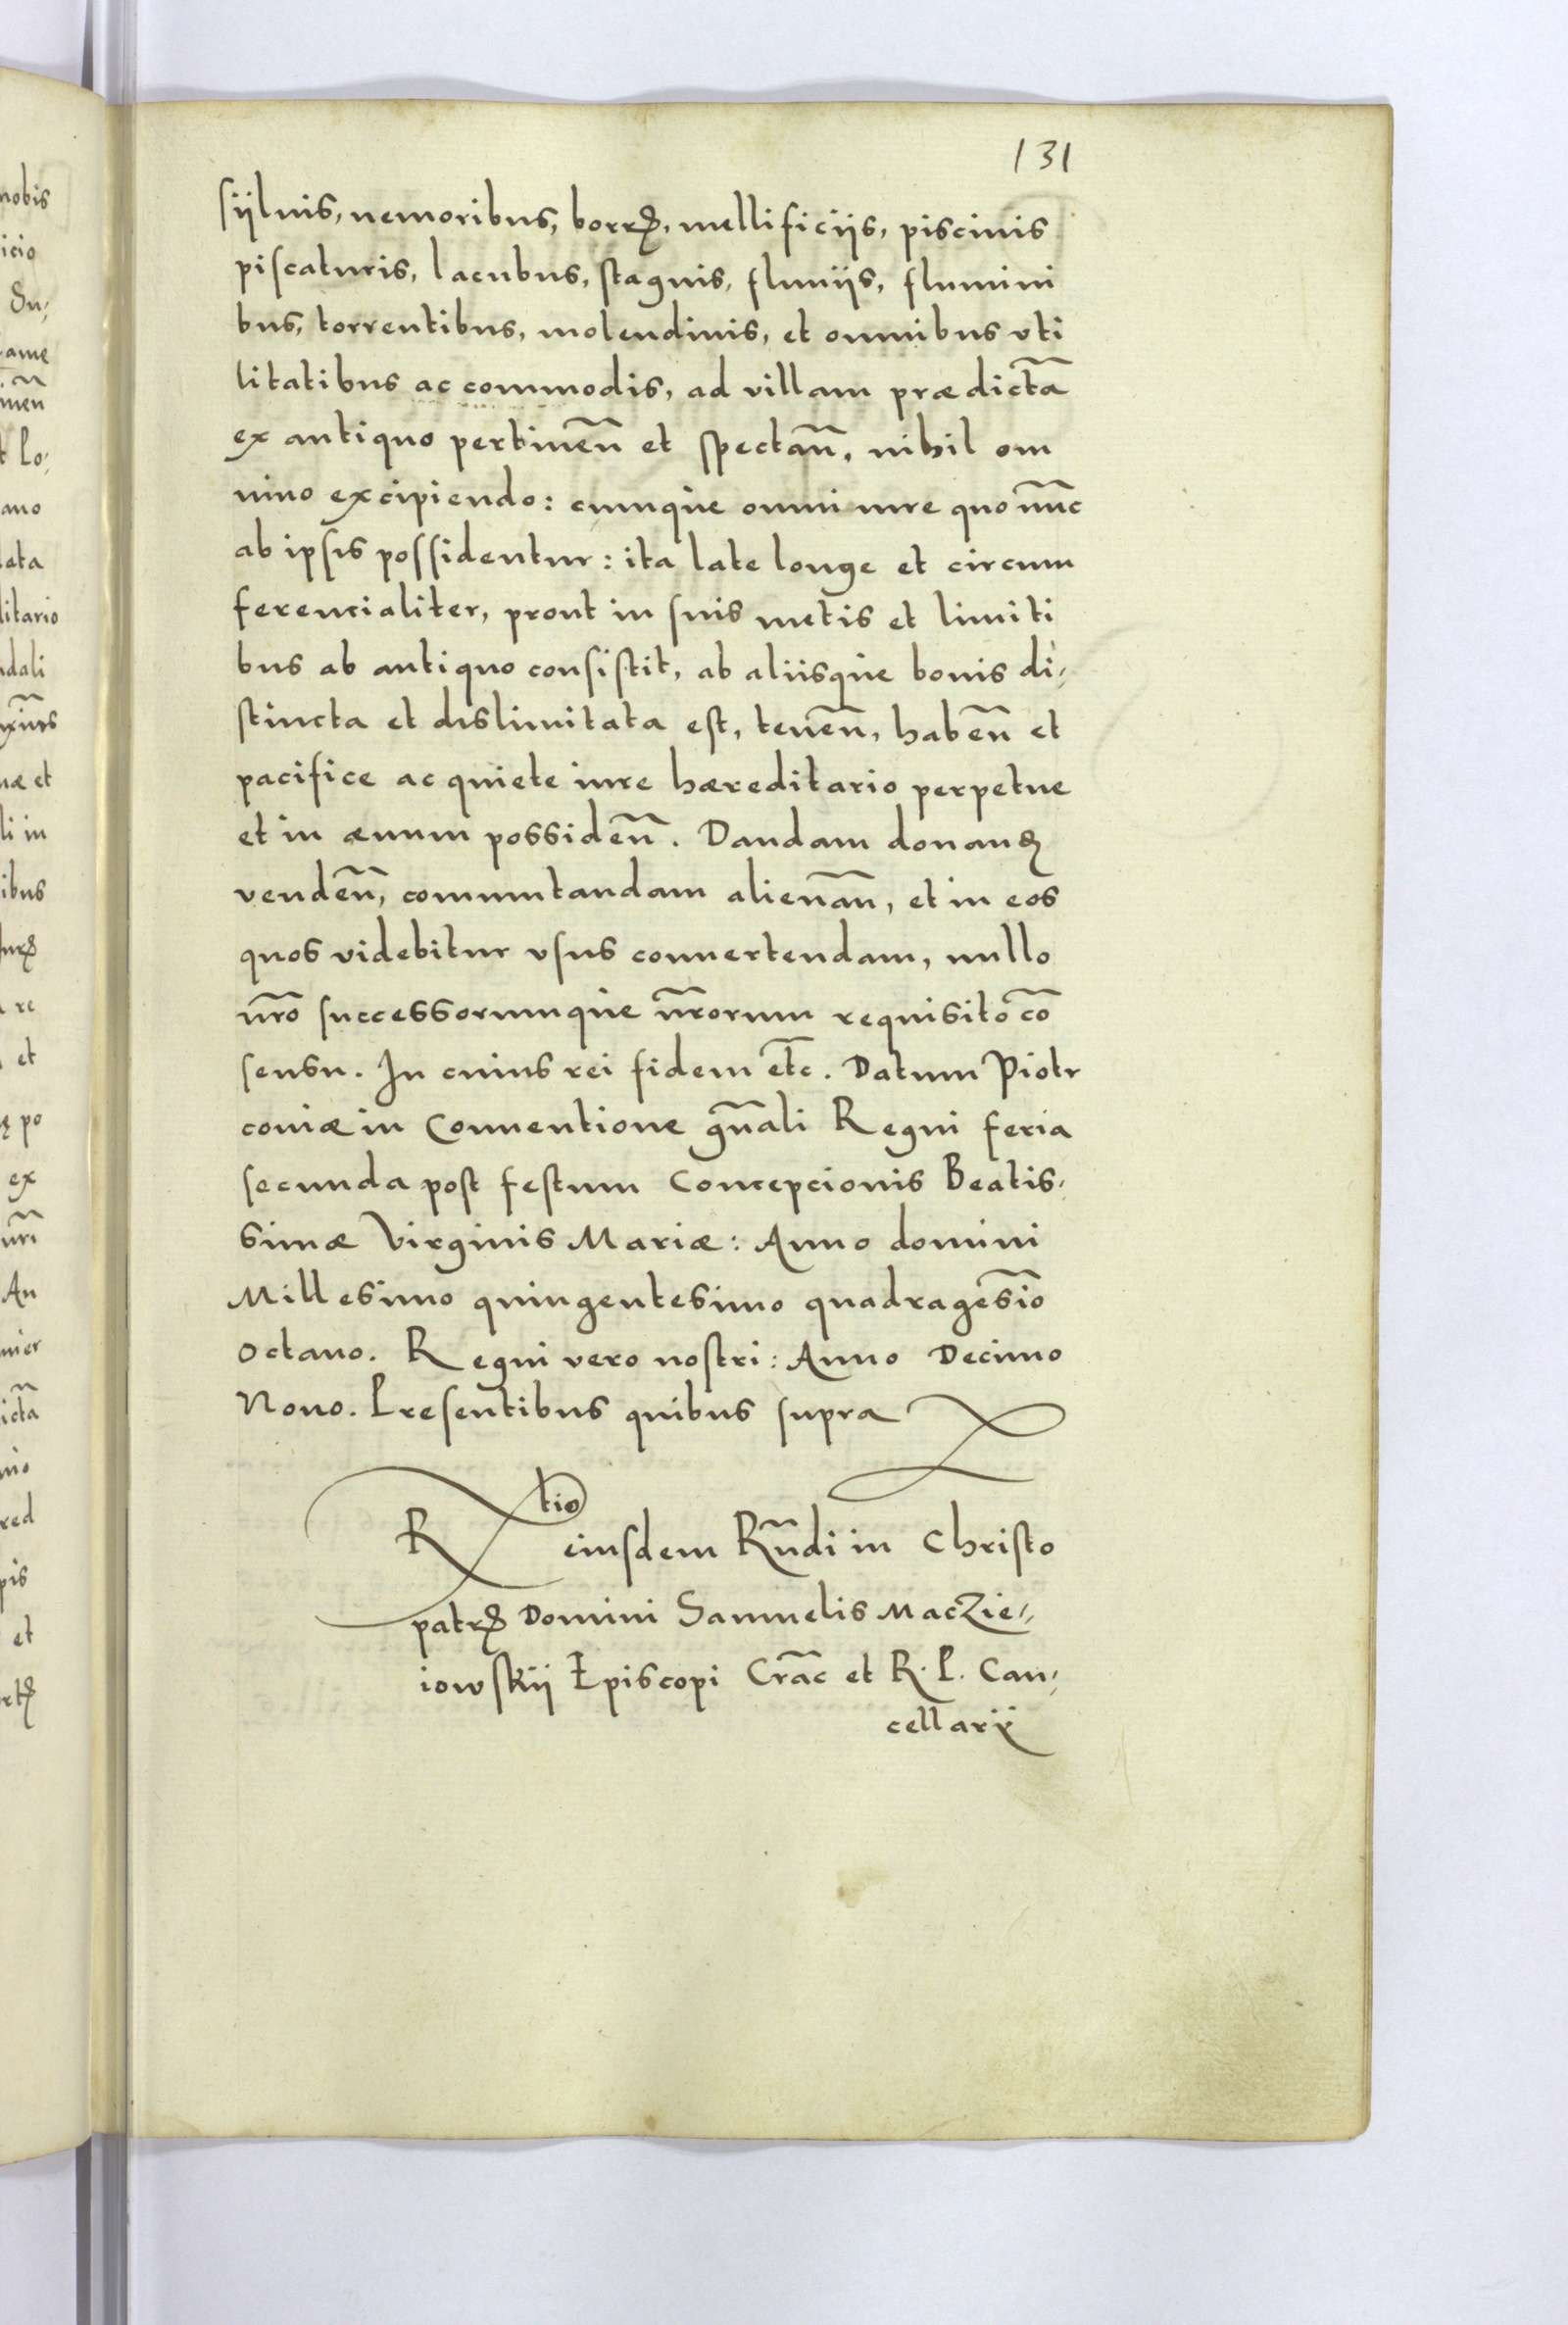 131
sÿluis, nemoribus, borrꝭ, mellificÿs, piscinis
piscaturis, lacubus, stagnis, fluuÿs, flumini
bus, torrentibus, molendinis, et omnibus vti
litatibus ac commodis, ad villam prædictã
ex antiquo pertinen̄ et spectan̄, nihil om
nino excipiendo: cumque omni iure quo nūc
ab ipsis possidentur: ita late longe et circum
ferencialiter, prout in suis metis et limiti
bus ab antiquo consistit, ab aliisque bonis di,
stincta et dislimitata est, tenen̄, haben̄ et
pacifice ac quiete iure hæreditario perpetue
et in æuum possiden̄. Dandam donanꝭ
venden̄, commutandam alienan̄, et in eos
quos videbitur vsus conuertendam, nullo
nr̄o successorumque nr̄orum requisito cō
sensu. In cuius rei fidem etc̄. Datum Piotr
couiæ in Conuentione gn̄ali Regni feria
secunda post festum Concepcionis Beatis,
simæ Virginis Mariæ: Anno domini
Millesimo quingentesimo quadragesīo
octauo. Regni vero nostri: Anno Decimo
Nono. Presentibus quibus supra
Rtio eiusdem Rn̄di in Christo
patrꝭ Domini Samuelis Maczie,,
iowskÿ Episcopi Crac̄ et R. P. Can,
cellarÿ
nobis
icio
Du,
ame
men̄
t Lo,
ano
lata
litario
ndali
næ et
li in
ibus
re
et
po
ex
nr̄i
An
nier
ictã
red
pis
et